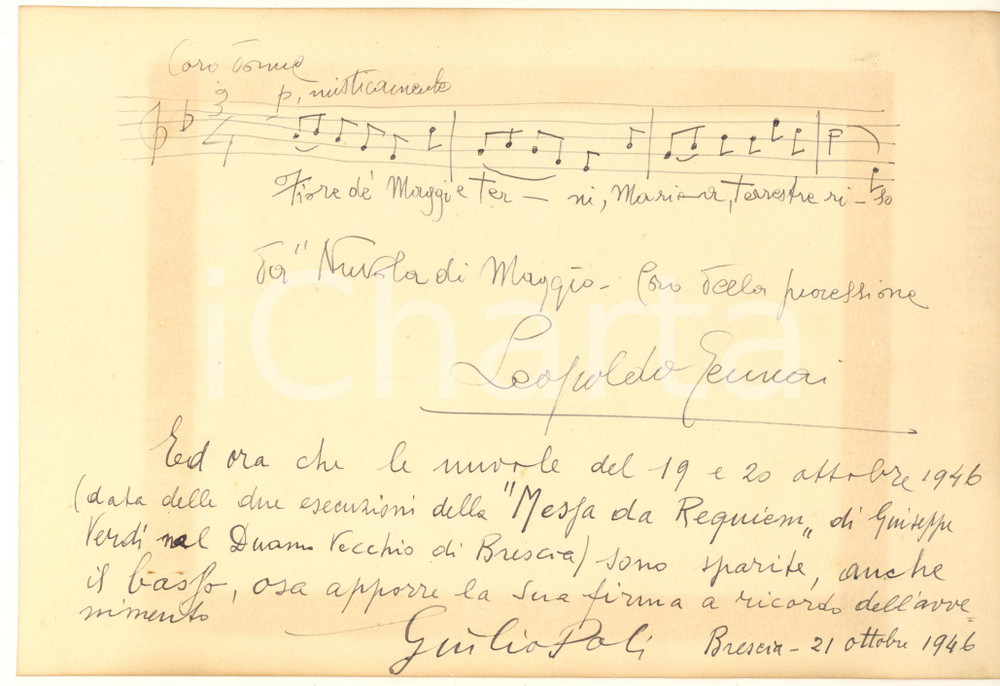 Coro donne
3
4
p, misticamente
Fiore de' Maggi eter — ni, Mari-a, terrestre ri-so
da "Nuvola di Maggio - Coro della processione
Leopoldo Gennai
Ed ora che le nuvole del 19 e 20 ottobre 1946
(data delle due esecuzioni della "Messa da Requiem„ di Giuseppe
Verdi nel Duomo Vecchio di Brescia) sono sparite, anche
il basso, osa apporre la sua firma a ricordo dell'avve=
nimento
Giulio Poli Brescia - 21 ottobre 1946
iCharta